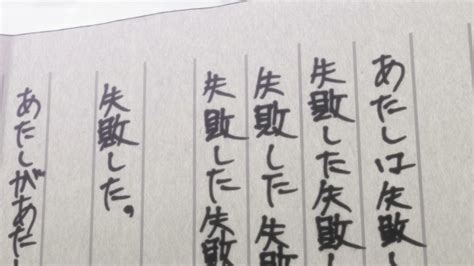 あたしは失敗
失敗した失敗
失敗した失敗
失敗した失敗
失敗した。
あたしがあた